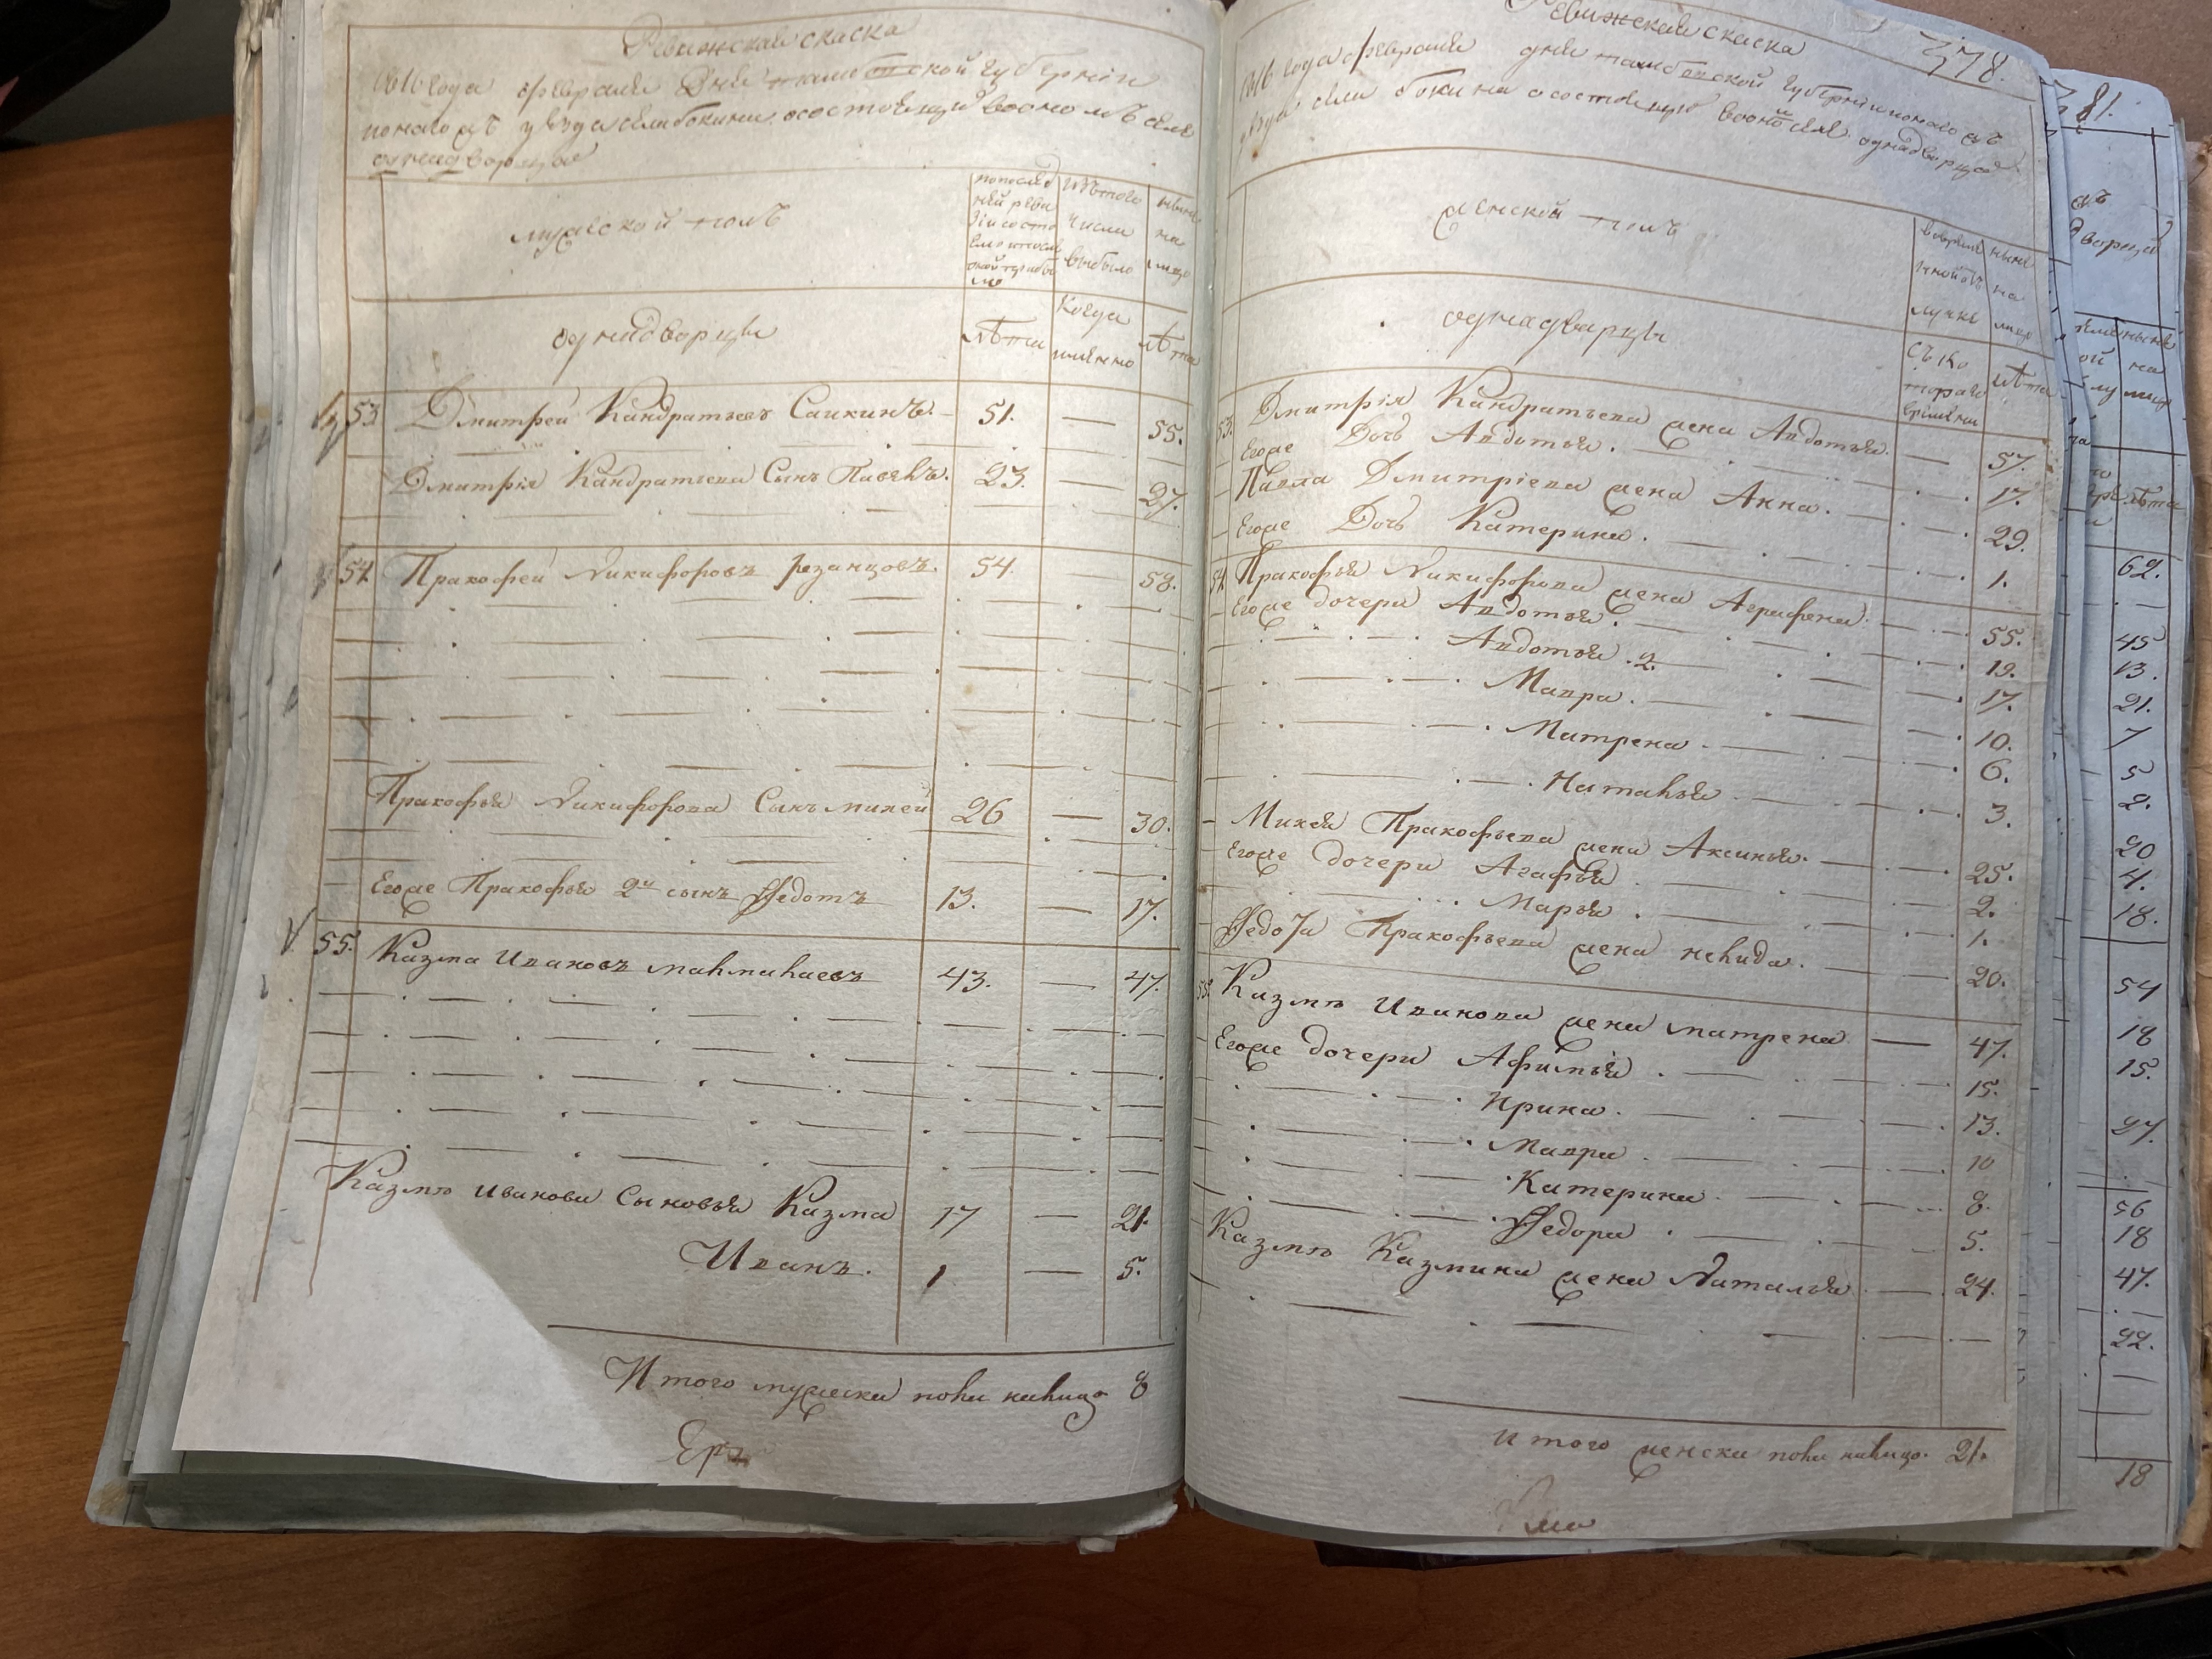 Ревижская скаска
1816 года февраля дня тамбовской губернии
уезда села бокина о состоящих во оном селе
однадворцов
мужеской полъ
по послед
ней реви
зіи состо
изъ того
числа
выбыло
ныне
на
лицо
однадворцы
лѣта
когда
имянно
лѣта
53. Дмитреи Кандратьевъ Саикинъ. 51. — 55.
Дмитрія Кандратьева Сынъ Павелъ. 23. — 27.
54 Пракофеи Никифоровъ резанцовъ. 54. 58.
Пракофья Никифорова Сынъ микеи 26 — 30.
Егоже Пракофья 2й сынъ Федотъ 13. — 17.
55. Казма Ивановъ малмалаевъ 43. — 47.
Казмы Иванова Сыновья Казма 17 — 21.
Иванъ. 1 — 5.
Итого мужеска пола налицо 8
378.
Ревижская скаска
1816 года февраля дня тамбовской губернии
уезда села бокина о состоящих во оном селе однадворцов
женской полъ
во време
нной от
лучке
ныне
на
лицо
однадворцы
съ ко
тораго
времяни
лѣта
53. Дмитрія Кандратьева жена Авдотья. — 57.
Егоже Дочь Авдотья. 17.
Павла Дмитріева жена Анна. 29.
Егоже Дочь Катерина. 1.
54 Пракофья Никифорова жена Аграфена. 55.
Егоже дочери Авдотья. 19.
Авдотья .2. 17.
Мавра. 10.
Матрена. 6.
Наталья 3.
Микея Пракофьева жена Аксинья. 25.
Егоже дочери Агафья 2.
Марья. 1.
Федота Пракофьева жена нелида. 20.
55. Казмы Иванова жена матрена — 47.
Егоже дочери Афимья. 15.
Ирина. 13.
Мавра 10
Катерина. 8.
Федора 5.
Казмы Казмина жена Наталья 24.
итого женска пола налицо. 21.
381.
62.
45
13.
21.
7
5
2.
20
4.
18.
54
18
15.
27.
56
18
47.
22.
18